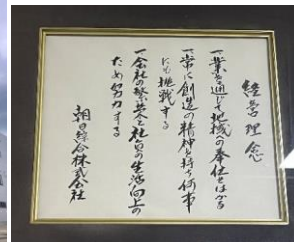 経営理念
一、業を通じて地域の奉仕をはかる
一、常に創造の精神を持ち何事
にも挑戦する
一、会社の繁栄と社員の生活向上の
ため努力する
朝日綜合株式会社